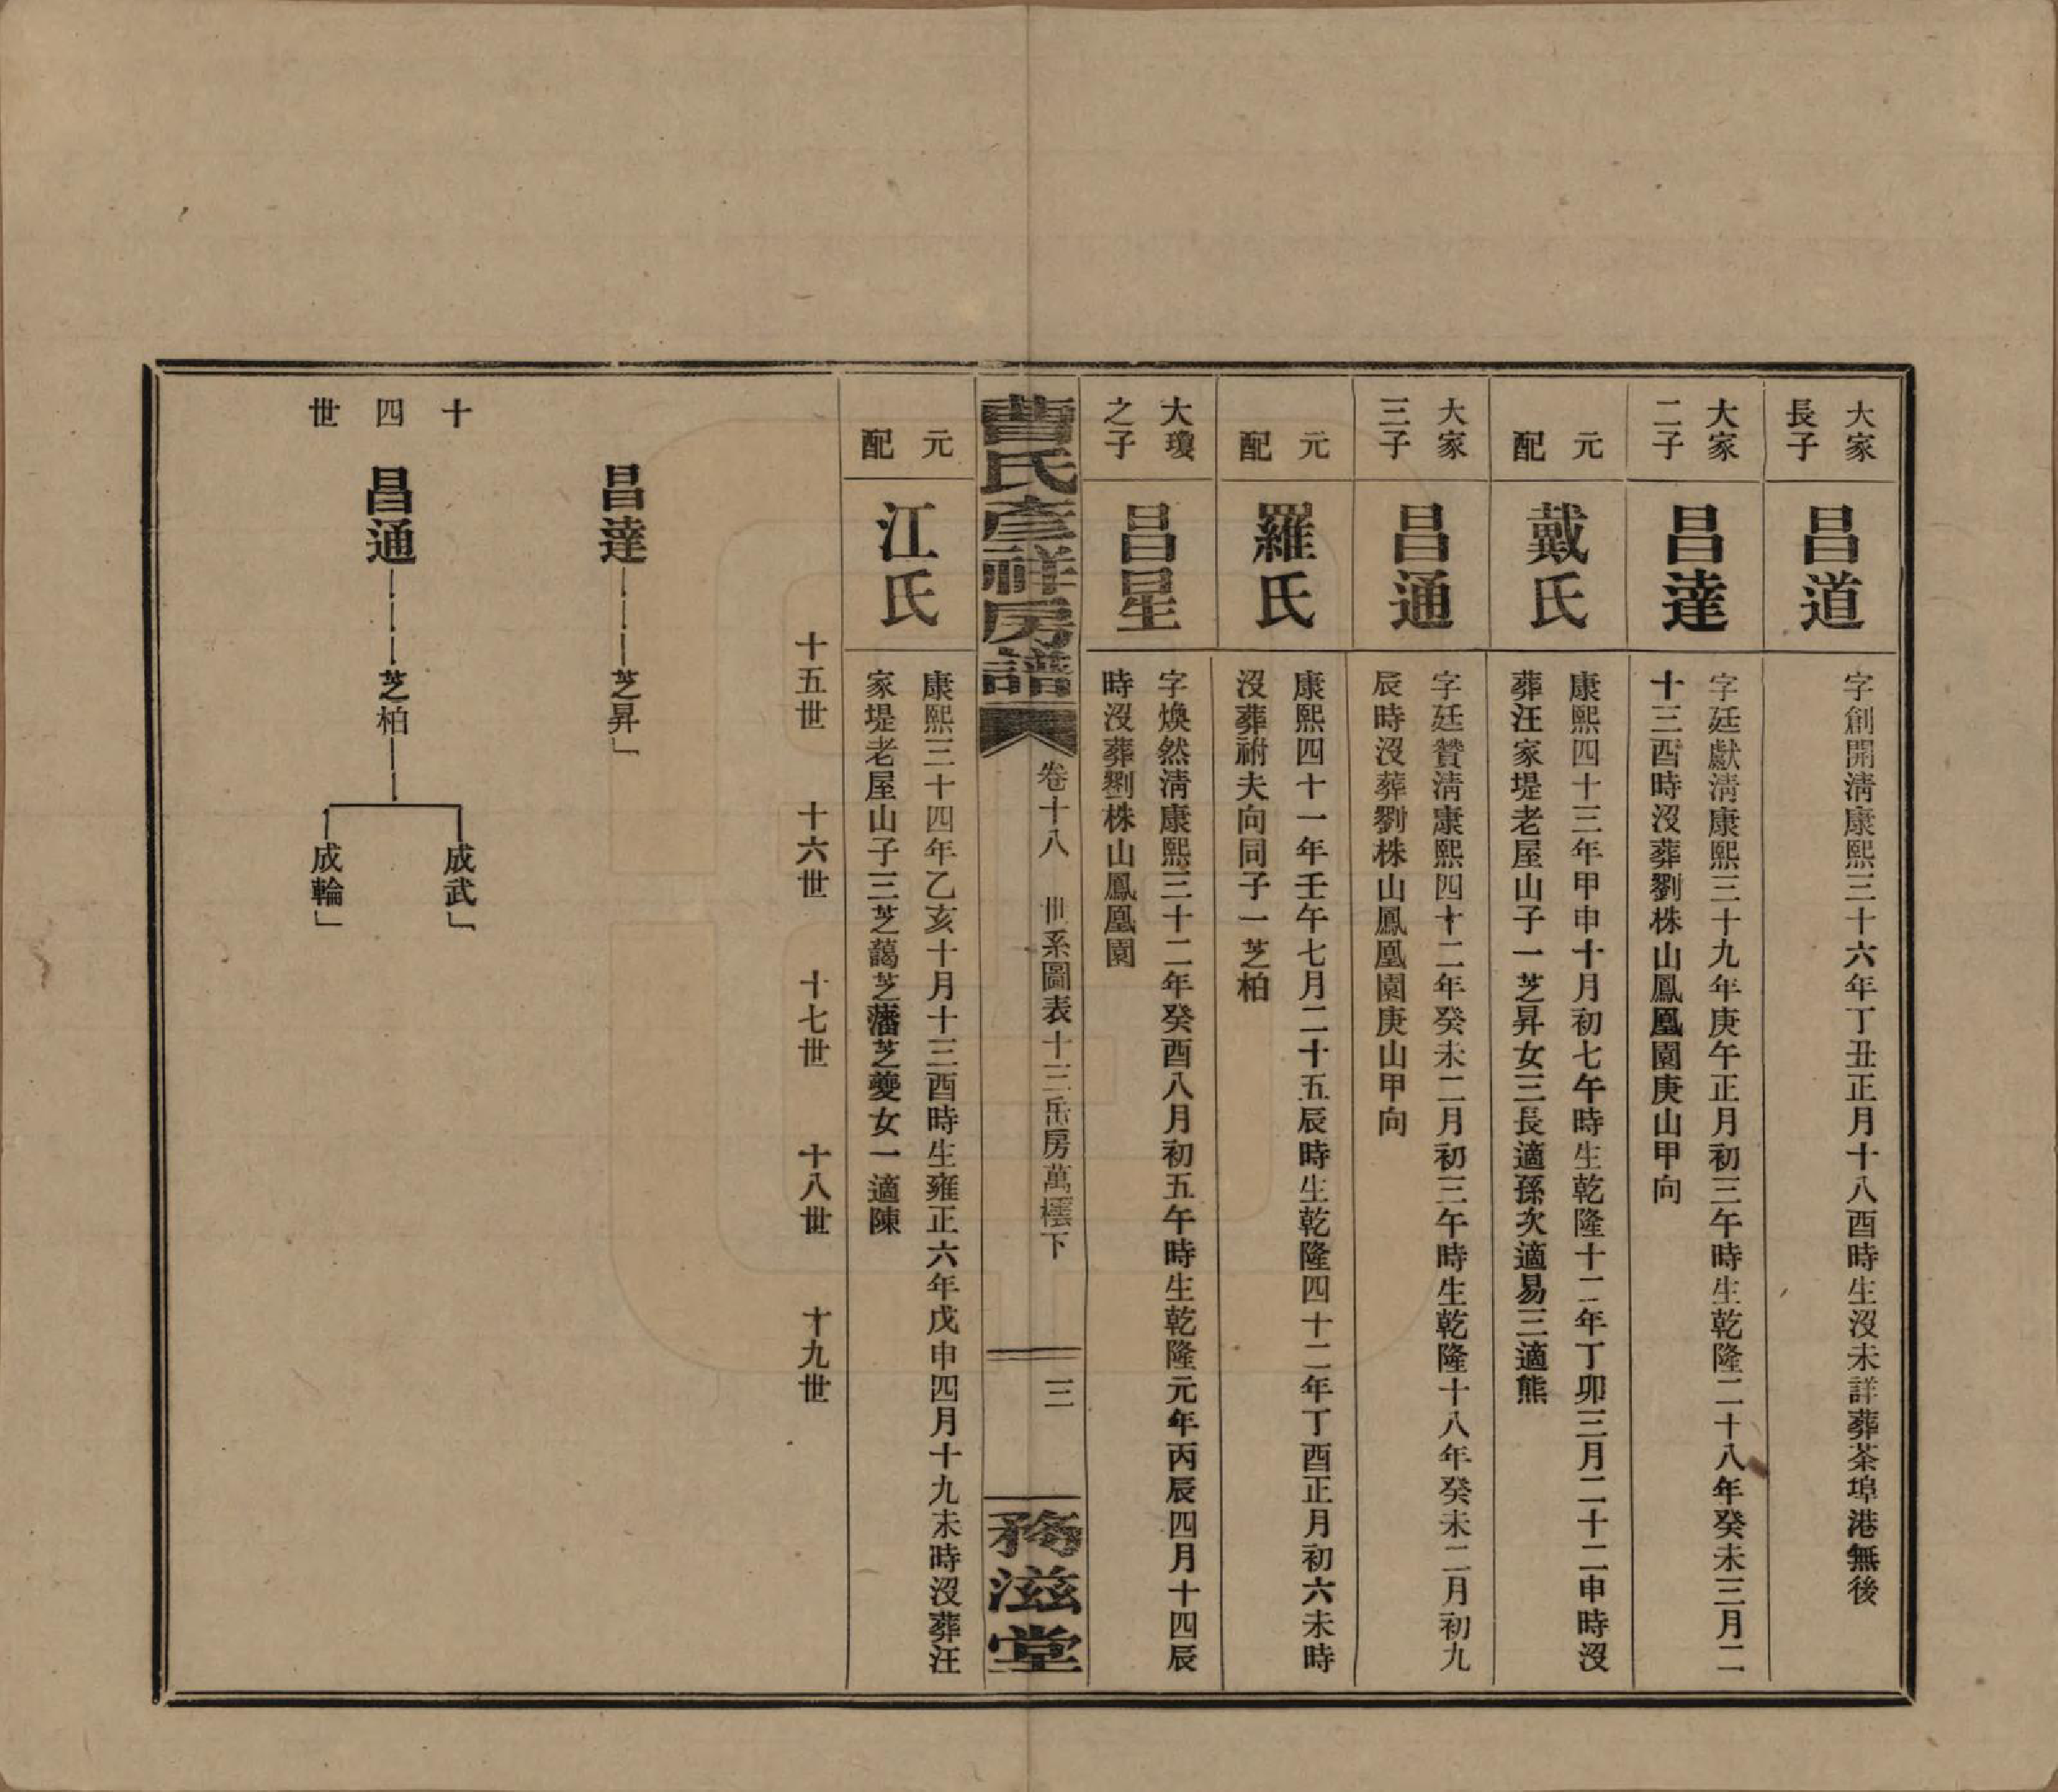 大家
長子
昌道
字創開淸康熙三十六年丁丑正月十八酉時生沒未詳葬茶埠港無後
大家
二子
昌達
字廷獻淸康熙三十九年庚午正月初三午時生乾隆二十八年癸未三月二
十三酉時沒葬劉株山鳳凰園庚山甲向
元
配
戴氏
康熙四十三年甲申十月初七午時生乾隆十二年丁卯三月二十二申時沒
葬汪家堤老屋山子一芝昇女三長適孫次適易三適熊
大家
三子
昌通
字廷贊淸康熙四十二年癸未二月初三午時生乾隆十八年癸未二月初九
辰時沒葬劉株山鳳凰園庚山甲向
元
配
羅氏
康熙四十一年壬午七月二十五辰時生乾隆四十二年丁酉正月初六未時
沒葬祔夫向同子一芝柏
大瓊
之子
昌星
字煥然淸康熙三十二年癸酉八月初五午時生乾隆元年丙辰四月十四辰
時沒葬劉株山鳳凰園
曹氏彥祥房譜
卷十八 世系圖表十三岳房萬檯下
三
務滋堂
元
配
江氏
康熙三十四年乙亥十月十三酉時生雍正六年戊申四月十九未時沒葬汪
家堤老屋山子三芝藹芝藩芝夔女一適陳
十五世 十六世 十七世 十八世 十九世
昌達 芝昇」
十四世
昌通 芝柏
成武」
成輪」